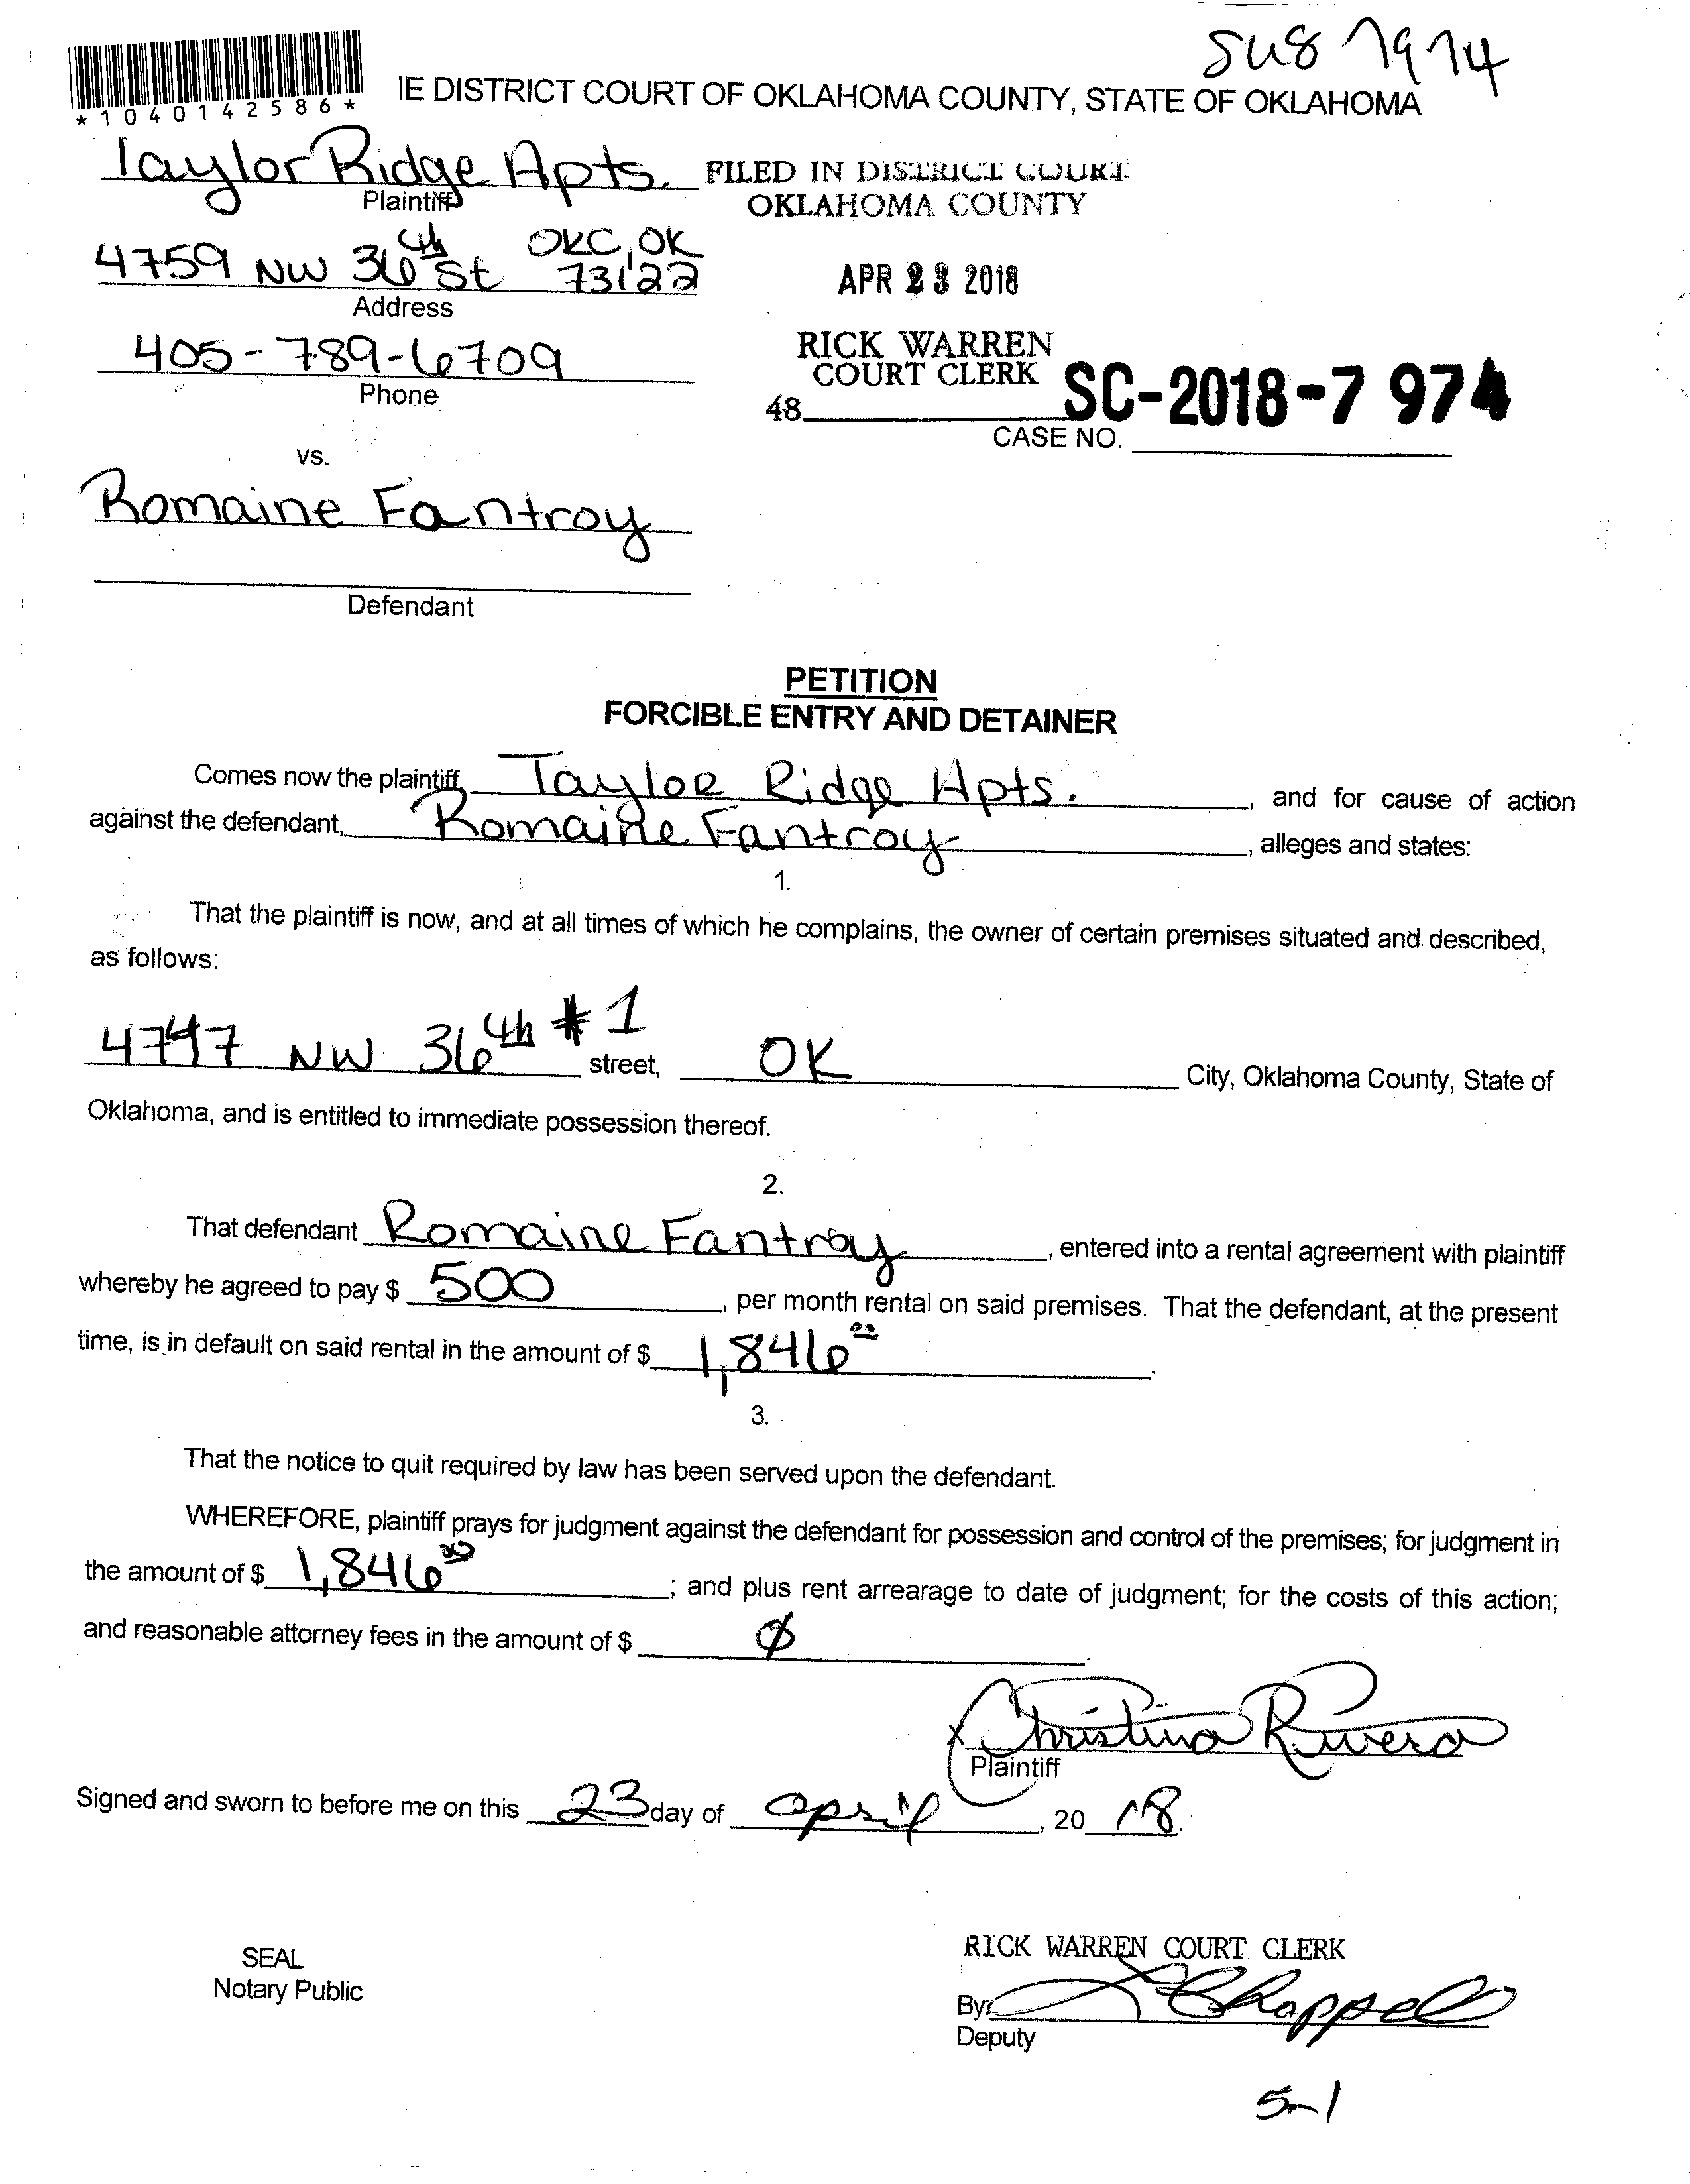 SUS 7974
*1040142586*
IE DISTRICT COURT OF OKLAHOMA COUNTY, STATE OF OKLAHOMA
Taylor Ridge Apts.
Plaintiff
FILED IN DISTRICT COURT
OKLAHOMA COUNTY
4759 NW 36th St OKC, OK 73122
Address
APR 23 2018
405-789-6709
Phone
RICK WARREN
COURT CLERK
48
SC-2018-7 974
CASE NO.
vs.
Romaine Fantroy
Defendant
PETITION
FORCIBLE ENTRY AND DETAINER
Comes now the plaintiff, Taylor Ridge Apts., and for cause of action
against the defendant, Romaine Fantroy, alleges and states:
1.
That the plaintiff is now, and at all times of which he complains, the owner of certain premises situated and described,
as follows:
4747 NW 36th #1 street, OK City, Oklahoma County, State of
Oklahoma, and is entitled to immediate possession thereof.
2.
That defendant Romaine Fantroy, entered into a rental agreement with plaintiff
whereby he agreed to pay $ 500, per month rental on said premises. That the defendant, at the present
time, is in default on said rental in the amount of $ 1,846 00.
3.
That the notice to quit required by law has been served upon the defendant.
WHEREFORE, plaintiff prays for judgment against the defendant for possession and control of the premises; for judgment in
the amount of $ 1,846 00; and plus rent arrearage to date of judgment; for the costs of this action;
and reasonable attorney fees in the amount of $ Ø.
x Christina Rivera
Plaintiff
Signed and sworn to before me on this 23 day of april, 20 18.
SEAL
Notary Public
RICK WARREN COURT CLERK
By: Chappell
Deputy
5-1